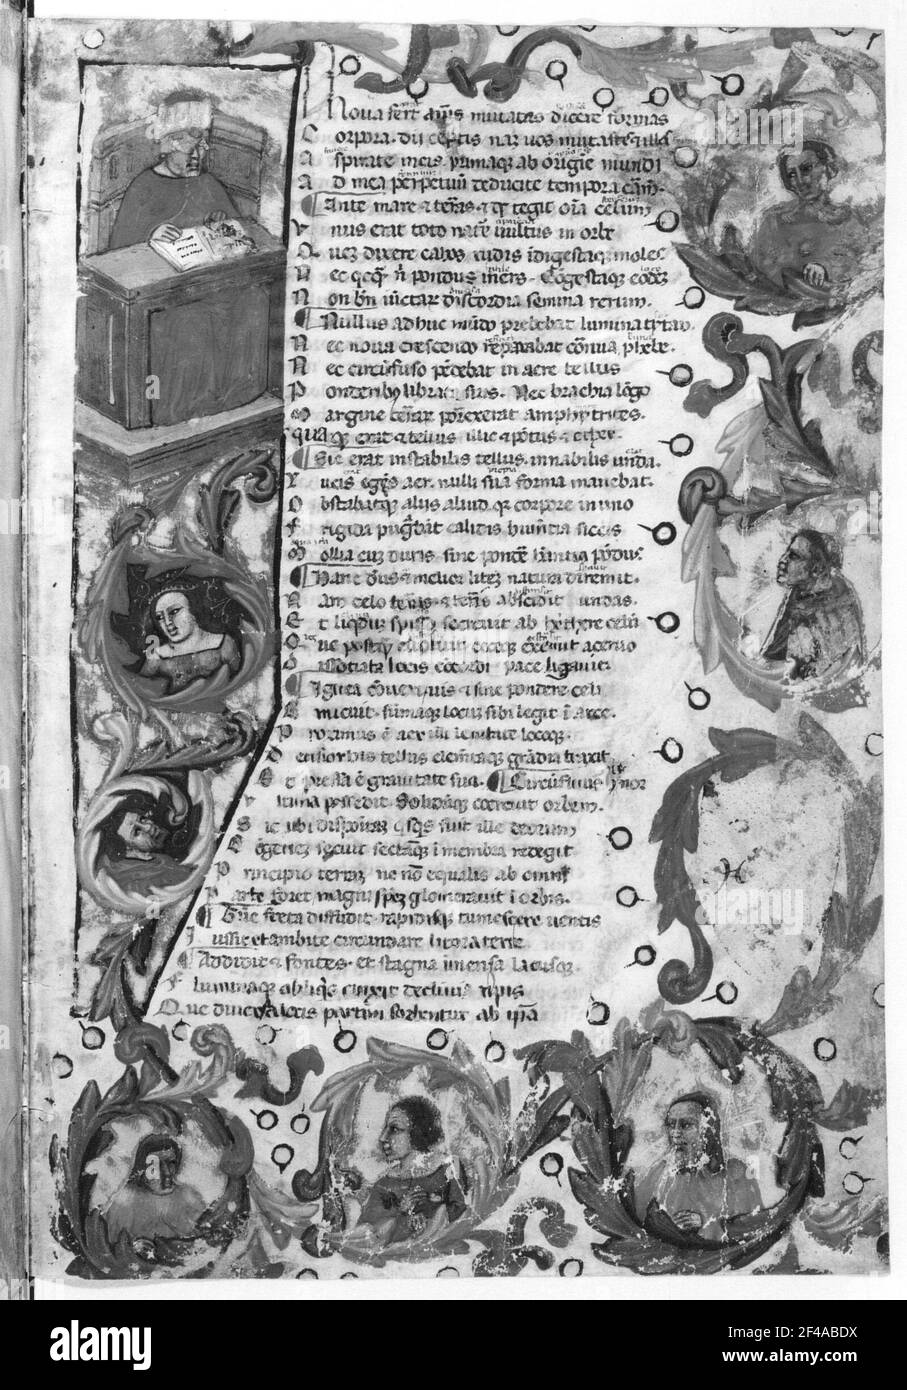 Noua fert aĩs mutatas dicere formas
Corpora. dii ceptis nã uos mutastꝭ & illa
Aspirate meis. primaq; ab origĩe mundi
Ad mea perpetuũ deducite tempora carm̃.
Ante mare & terras & qđ tegit oĩa celum
Vnus erat toto naturẽ uultus in orbe
Quez dixere cahos rudis ĩdigestaq; moles
Nec q̃cq̃ ñ pondus iners. cõgestaq; eodez
Non bñ iũctar discordia semina rerum.
Nullus adhuc mũdo prebebat lumina tytan.
Nec noua crescendo reparabat cornua phebe.
Nec circũfuso pẽdebat in aere tellus
Ponderibꝰ librata suis. Nec brachia lõgo
Margine terrar porrexerat amphytrites.
quaq; erat & tellus illic & põtus & ether.
Sic erat instabilis tellus. innabilis unda.
Lucis egẽs aer. nulli sua forma manebat.
Obstabatq; aliis aliud. q̃ corpore in uno
Frigida pugñbãt calidis humẽtia siccis
Mollia cuz duris. sine pondẽ hñtia põdus
Hanc deus & melior litez natura diremit.
Nam celo terras. & terris abscidit undas.
Et liq̃dum spisso secreuit ab hethere celũ
Que postq̃ euoluit cecoq; exemit aceruo
Dissotiata locis cõcordi pace ligauit.
Ignea cõuexi uis & sine pondere celi
Emicuit. sũmaq; locuz sibi legit ĩ arce.
Proximus ẽ aer illi leuitate locoq;.
Densior his tellus elemẽtaq; grãdia traxit
Et pressa ẽ grauitate sua. Circũfluus hũor
Vltima possedit. Solidũq; cohercuit orbem.
Sic ubi dispositaz q̃sq̃s fuit ille deorum
Cõgeriez secuit sectãq; ĩ membra redegit
Principio terraz ne nõ equalis ab omni
Parte foret magni spez glomerauit ĩ orbis.
Tũc freta diffudit. rapidisq; tumescere uentis
Iussit et ambite circundare litora terre
Addidit & fontes. et stagna imensa lacusq;
Fluminaq; obliq̃s cinxit decliuia ripis
Que diuersa locis partim sorbentur ab ipã
alamy
a
a
alamy
Image ID: 2F4ABDX
www.alamy.com